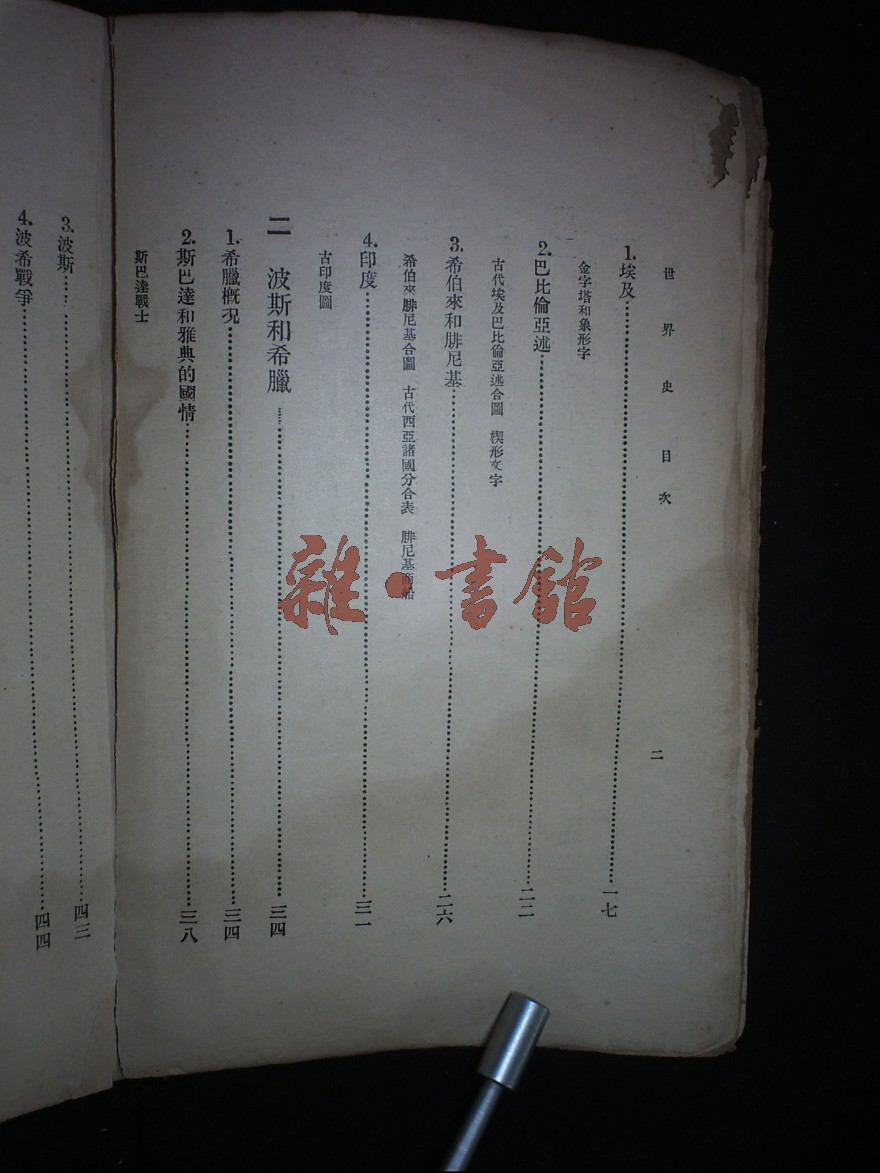 世界史目次
二
1.埃及……一七
金字塔和象形字
2.巴比倫亞述……二二
古代埃及巴比倫亞述合圖 楔形文字
3.希伯來和腓尼基……二六
希伯來腓尼基合圖 古代西亞諸國分合表 腓尼基商船
4.印度……三一
古印度圖
二 波斯和希臘……三四
1.希臘概況……三四
2.斯巴達和雅典的國情……三八
斯巴達戰士
3.波斯……四三
4.波希戰爭……四四
雜·書館